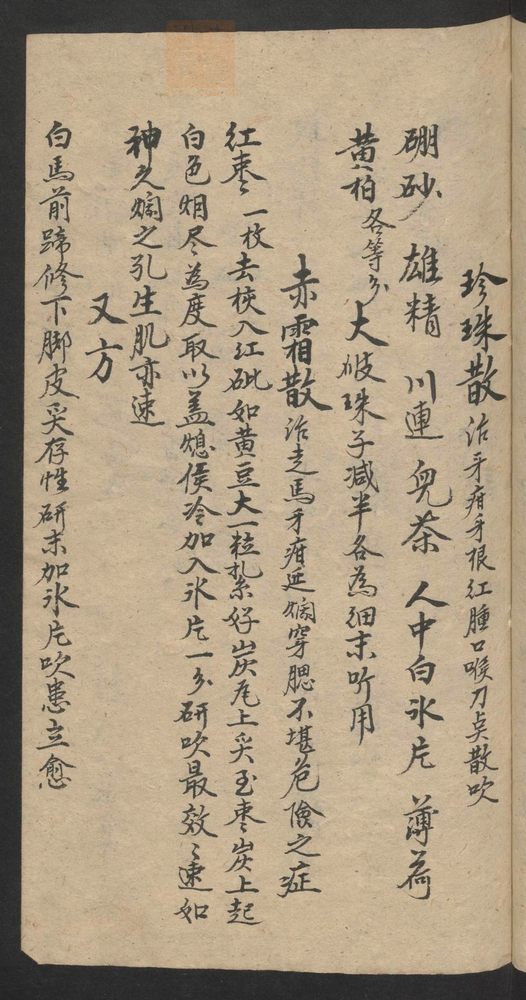 珍珠散治牙疳牙根红腫口喉刀点散吹
硼砂 雄精 川連 兒茶 人中白 氷片 薄荷
黄柏各等分大破珠子減半各為细末听用
赤霜散治走馬牙疳延烂穿腮不堪危險之症
红枣一枚去核入红砒如黄豆大一粒紥好炭瓦上炙至枣炭上起
白色烟尽為度取以盖熄侯冷加入氷片一分研吹最效〻速如
神久烂之孔生肌亦速
又方
白馬前蹄修下脚皮炙存性研末加氷片吹患立愈